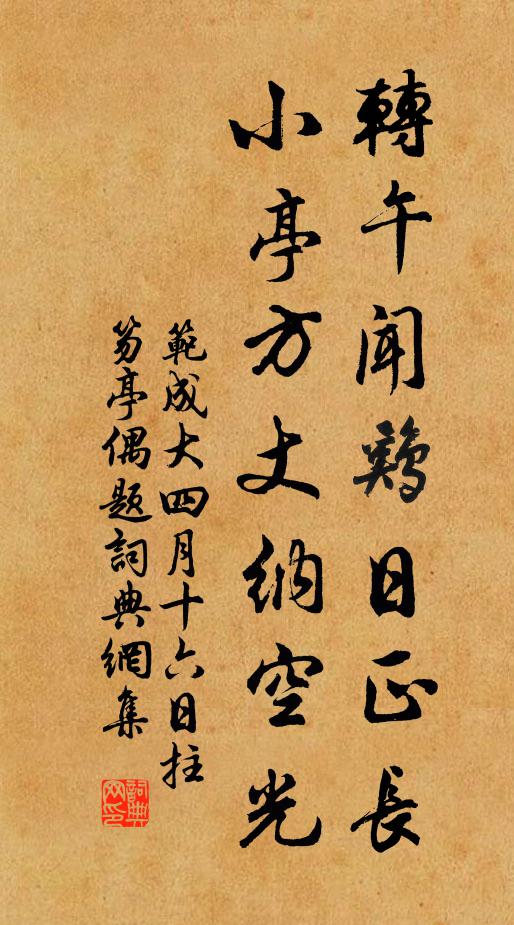 轉午聞鷄日正長
小亭方丈納空光
範成大四月十六日拄
笏亭偶題詞典網集
詞典網印